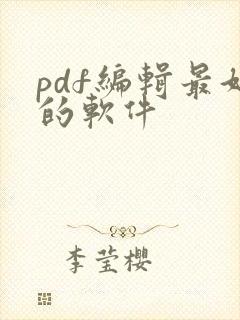 pdf編輯最好
的軟件
李莹櫻